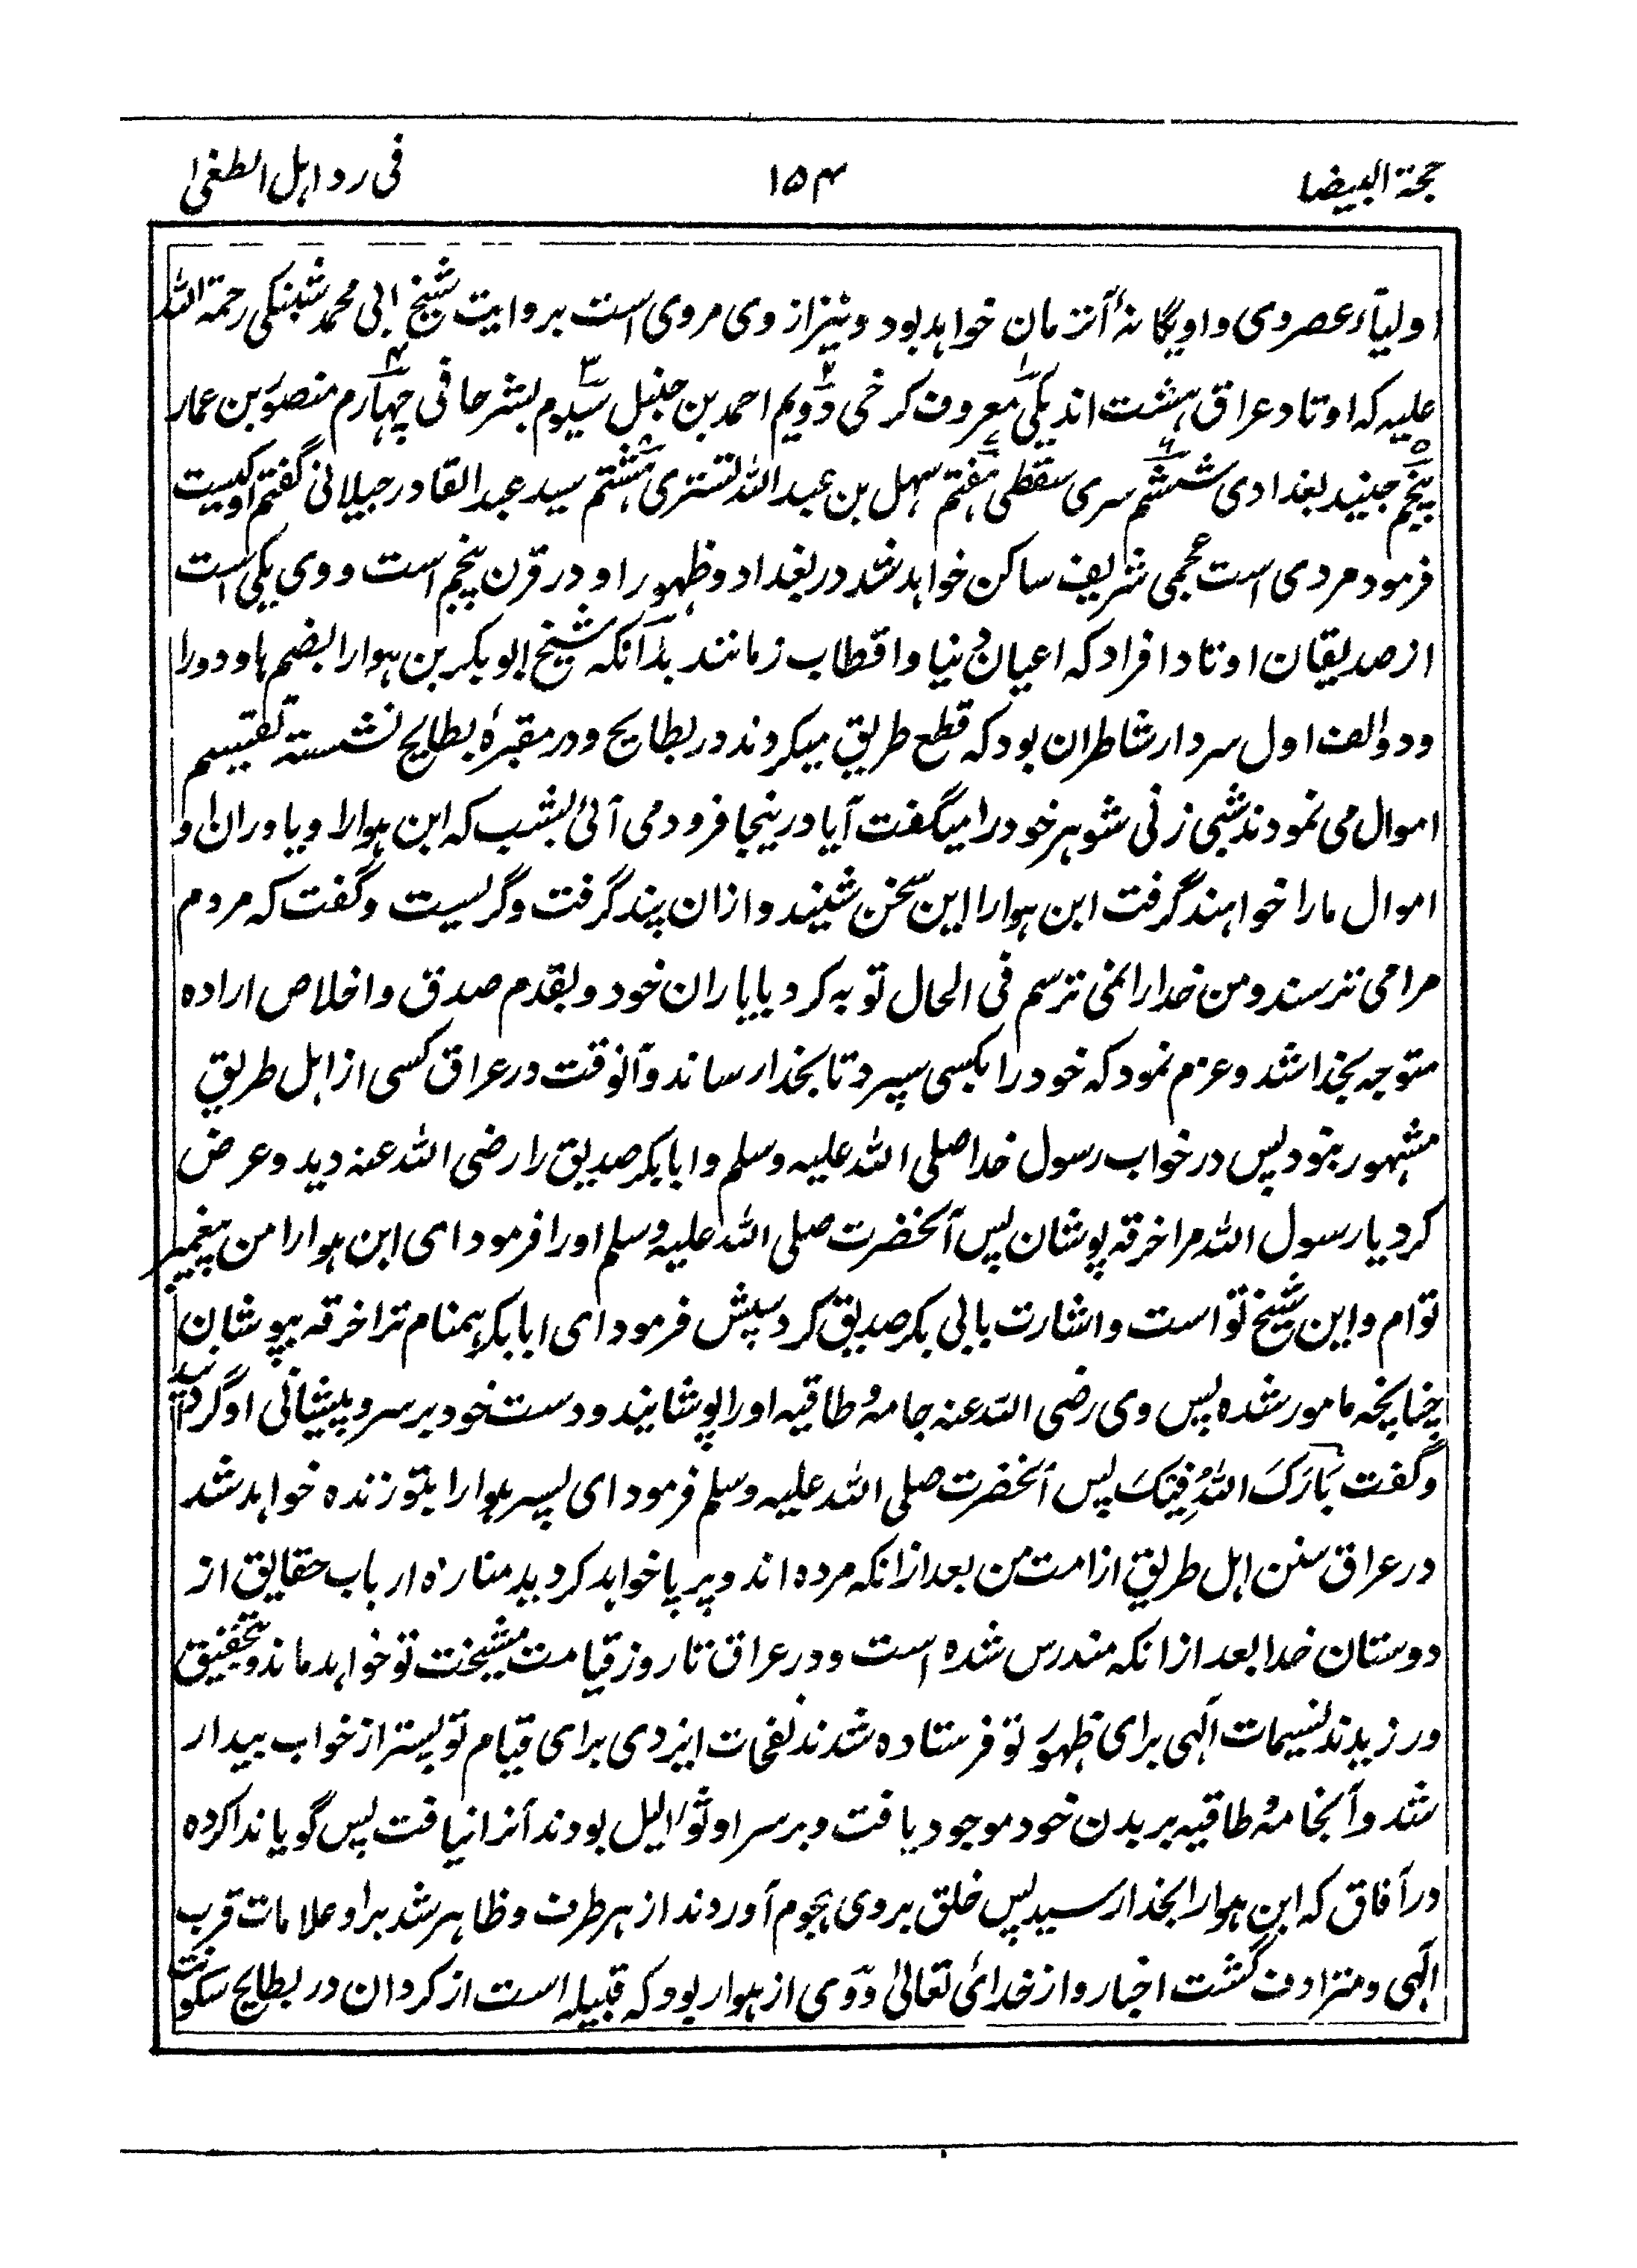 حجة البیضا ۱۵۴ فی رد اہل الطغیٰ
اولیاء عصر وی و او یگانۂ آنزمان خواہد بود و نیز از وی مروی است بروایت شیخ ابی محمد شبنکی رحمة اللہ
علیہ کہ اوتاد عراق ہشت اند یکی معروف کرخی دویم احمد بن حنبل سیوم بشر حافی چہارم منصور بن عمار
پنجم جنید بغدادی ششم سری سقطی ہفتم سہل بن عبد اللہ تستری ہشتم سید عبد القادر جیلانی گفتم او کیست
فرمود مردی است عجمی شریف ساکن خواہد شد در بغداد و ظہور او در قرن پنجم است و وی یکی است
از صدیقان اوتاد افراد کہ اعیان دنیا و اقطاب زمانند بدآنکہ شیخ ابو بکر بن ہوارا بضم ہا و دو را
و دو الف اول سردار شاطران بود کہ قطع طریق میکردند در بطایح و در مقبرۂ بطایح نشستہ تقسیم
اموال می نمودند شبی زنی شوہر خود را میگفت آیا درینجا فرود می آئی بشب کہ ابن ہوارا و یاوران او
اموال ما را خواہند گرفت ابن ہوارا این سخن شنید و ازان پند گرفت و گریست و گفت کہ مردم
مرا می ترسند و من خدا را نمی ترسم فی الحال توبہ کرد با یاران خود و بقدم صدق و اخلاص ارادہ
متوجہ بخدا شد و عزم نمود کہ خود را بکسی سپرد تا بخدا رساند و آنوقت در عراق کسی از اہل طریق
مشہور نبود پس در خواب رسول خدا صلی اللہ علیہ وسلم و ابا بکر صدیق را رضی اللہ عنہ دید و عرض
کرد یا رسول اللہ مرا خرقہ پوشان پس آنحضرت صلی اللہ علیہ وسلم او را فرمود ای ابن ہوارا من پیغمبر
توام و این شیخ تو است و اشارت بابی بکر صدیق کرد سپش فرمود ای ابا بکر ہمنام ترا خرقہ بپوشان
چنانچہ مامور شدہ پس وی رضی اللہ عنہ جامہ و طاقیہ او را پوشانیند و دست خود بر سر و پیشانی او گردانید
و گفت بَارَکَ اللہُ فِیْکَ پس آنحضرت صلی اللہ علیہ وسلم فرمود ای پسر ہوارا بتو زندہ خواہد شد
در عراق سنن اہل طریق از امت من بعد ازانکہ مردہ اند و برپا خواہد کردید منارہ ارباب حقایق از
دوستان خدا بعد ازانکہ مندرس شدہ است و در عراق تا روز قیامت مشیخت تو خواہد ماند و بتحقیق
ورزیدند نسیمات الٰہی برای ظہور تو فرستادہ شدند نفحات ایزدی برای قیام تو پستر از خواب بیدار
شد و آنجامہ و طاقیہ بر بدن خود موجود یافت و بر سر او ثوالیل بودند آنرا نیافت پس گویا ندا کردہ
در آفاق کہ ابن ہوارا بخدا رسید پس خلق بر وی ہجوم آوردند از ہر طرف و ظاہر شد براو علامات قرب
الٰہی و مترادف گشت اخبار و از خدای تعالیٰ و وی از ہوار بود کہ قبیلہ است از کردان در بطایح سکونت